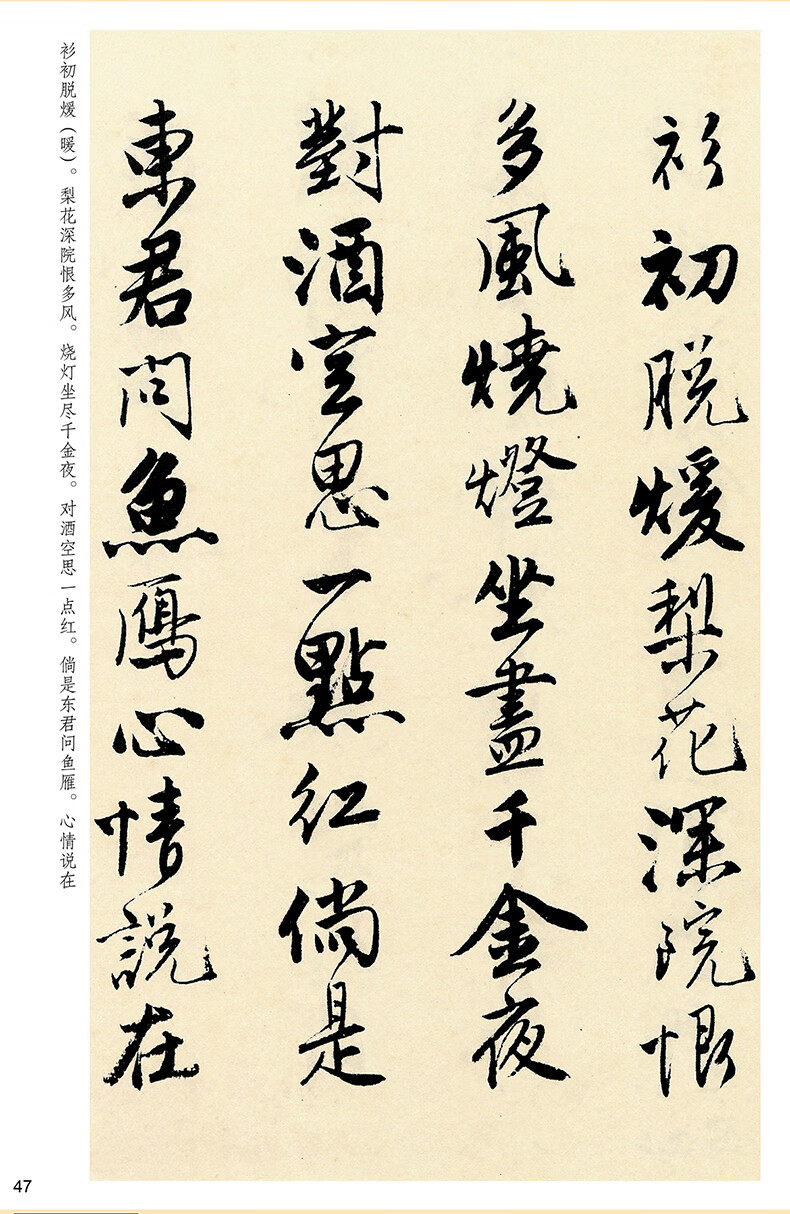 衫初脱煖梨花深院恨
多風燒燈坐盡千金夜
對酒空思一點紅倘是
東君問魚鴈心情説在
衫初脱煖（暖）。梨花深院恨多风。烧灯坐尽千金夜。对酒空思一点红。倘是东君问鱼雁。心情说在
47